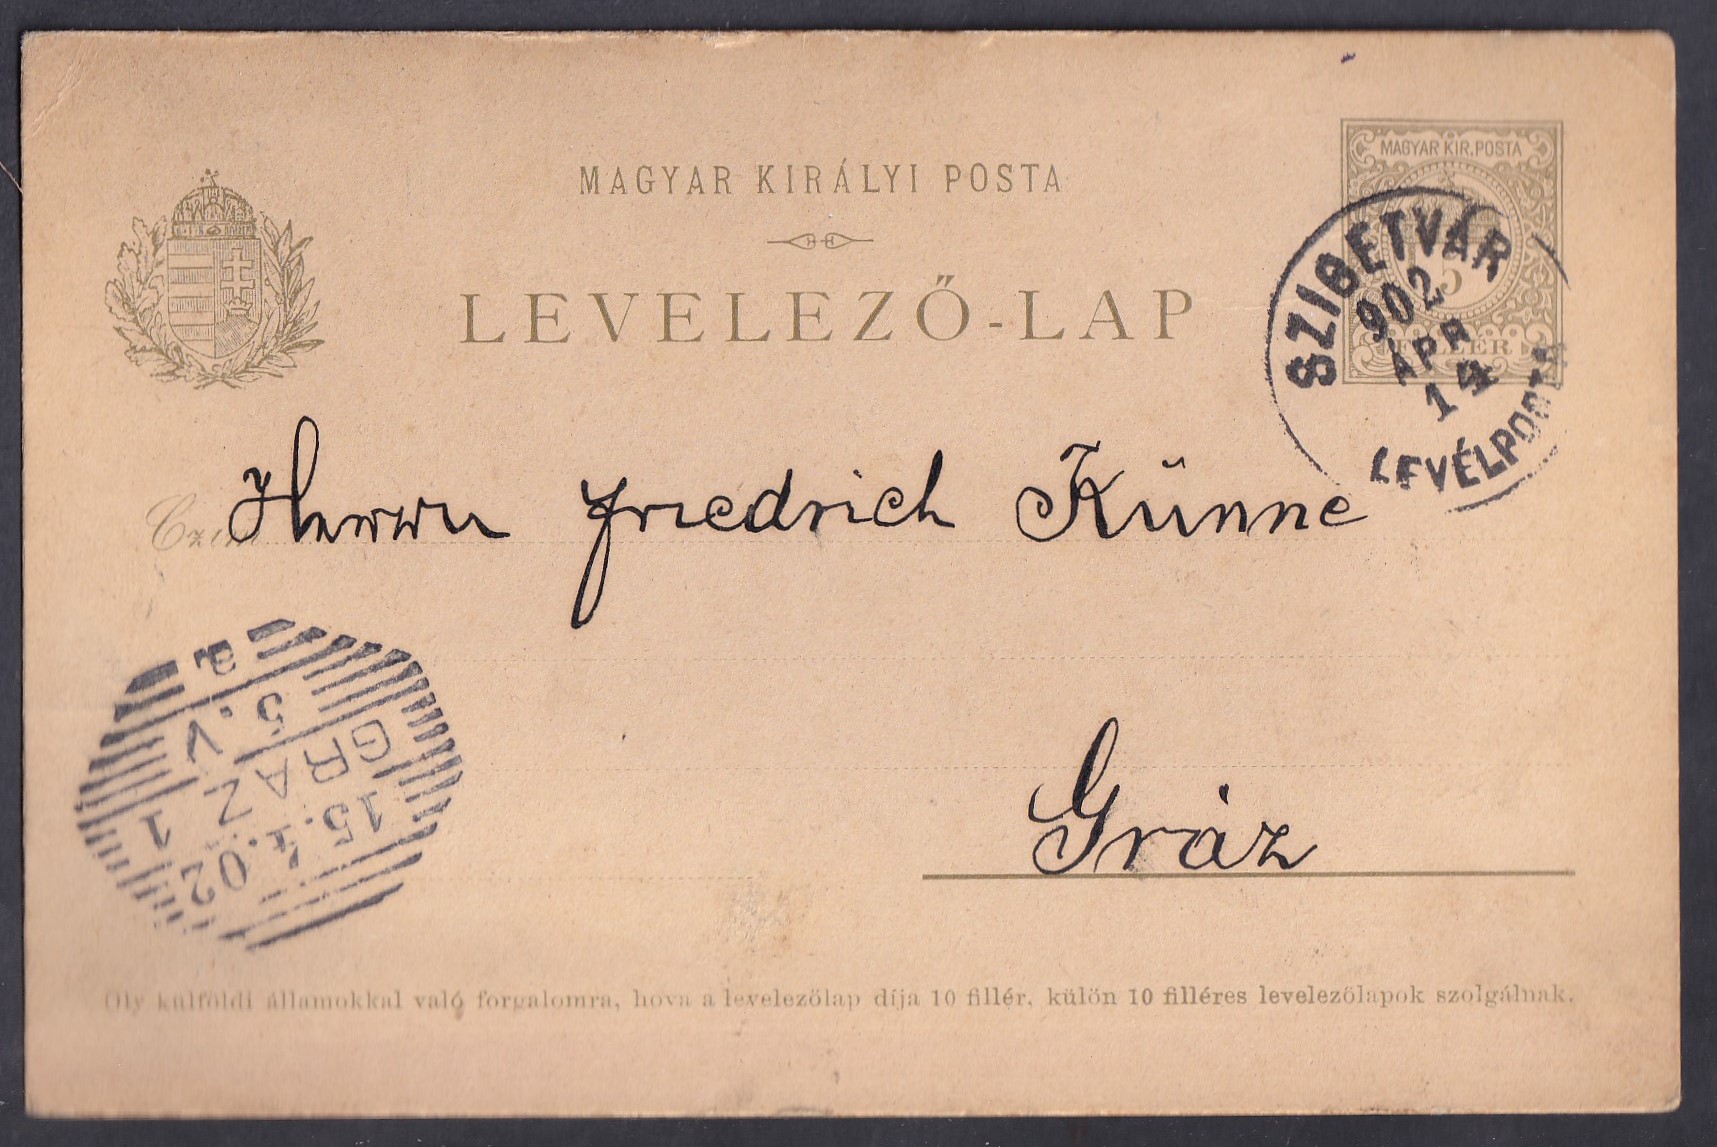 MAGYAR KIRÁLYI POSTA
LEVELEZŐ-LAP
MAGYAR KIR. POSTA
5
FILLÉR
SZIGETVÁR
902
ÁPR
14
LEVÉLPOSTA
Czím
Herrn Friedrich Künne
Gráz
GRAZ 1
15.4.02
5.V
a
Oly külföldi államokkal való forgalomra, hova a levelezőlap díja 10 fillér, külön 10 filléres levelezőlapok szolgálnak.